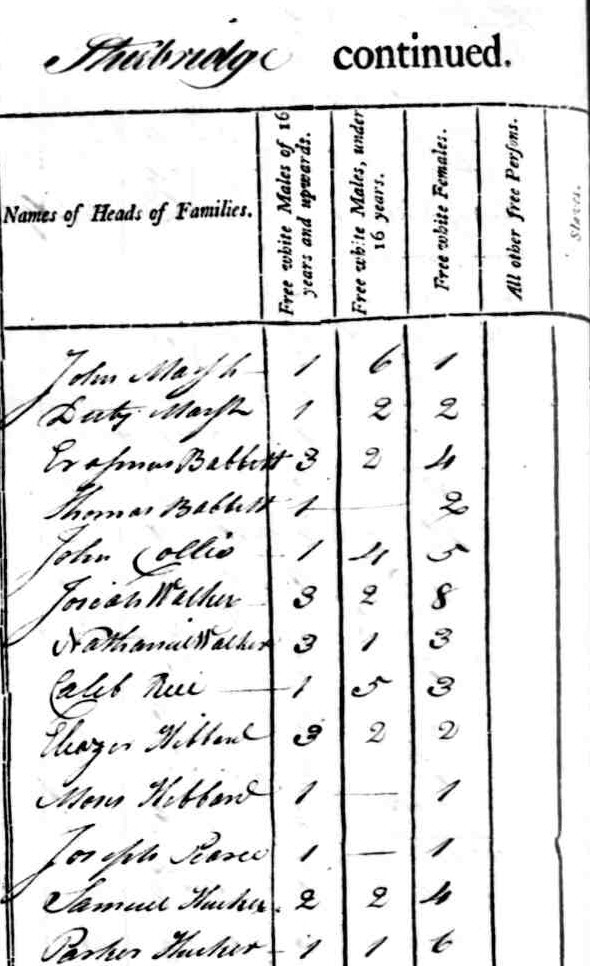 Sturbridge continued.
Names of Heads of Families. Free white Males of 16 years and upwards. Free white Males, under 16 years. Free white Females. All other free Persons. Slaves.
John Marsh 1 6 1
Duty Marsh 1 2 2
Erasmus Babbitt 3 2 4
Thomas Babbitt 1 — 2
John Collis 1 4 5
Josiah Walker 3 2 8
Nathaniel Walker 3 1 3
Caleb Rice 1 5 3
Eleazer Hibbard 3 2 2
Moses Hibbard 1 — 1
Joseph Pearce 1 — 1
Samuel 2 2 4
Parker 1 1 6